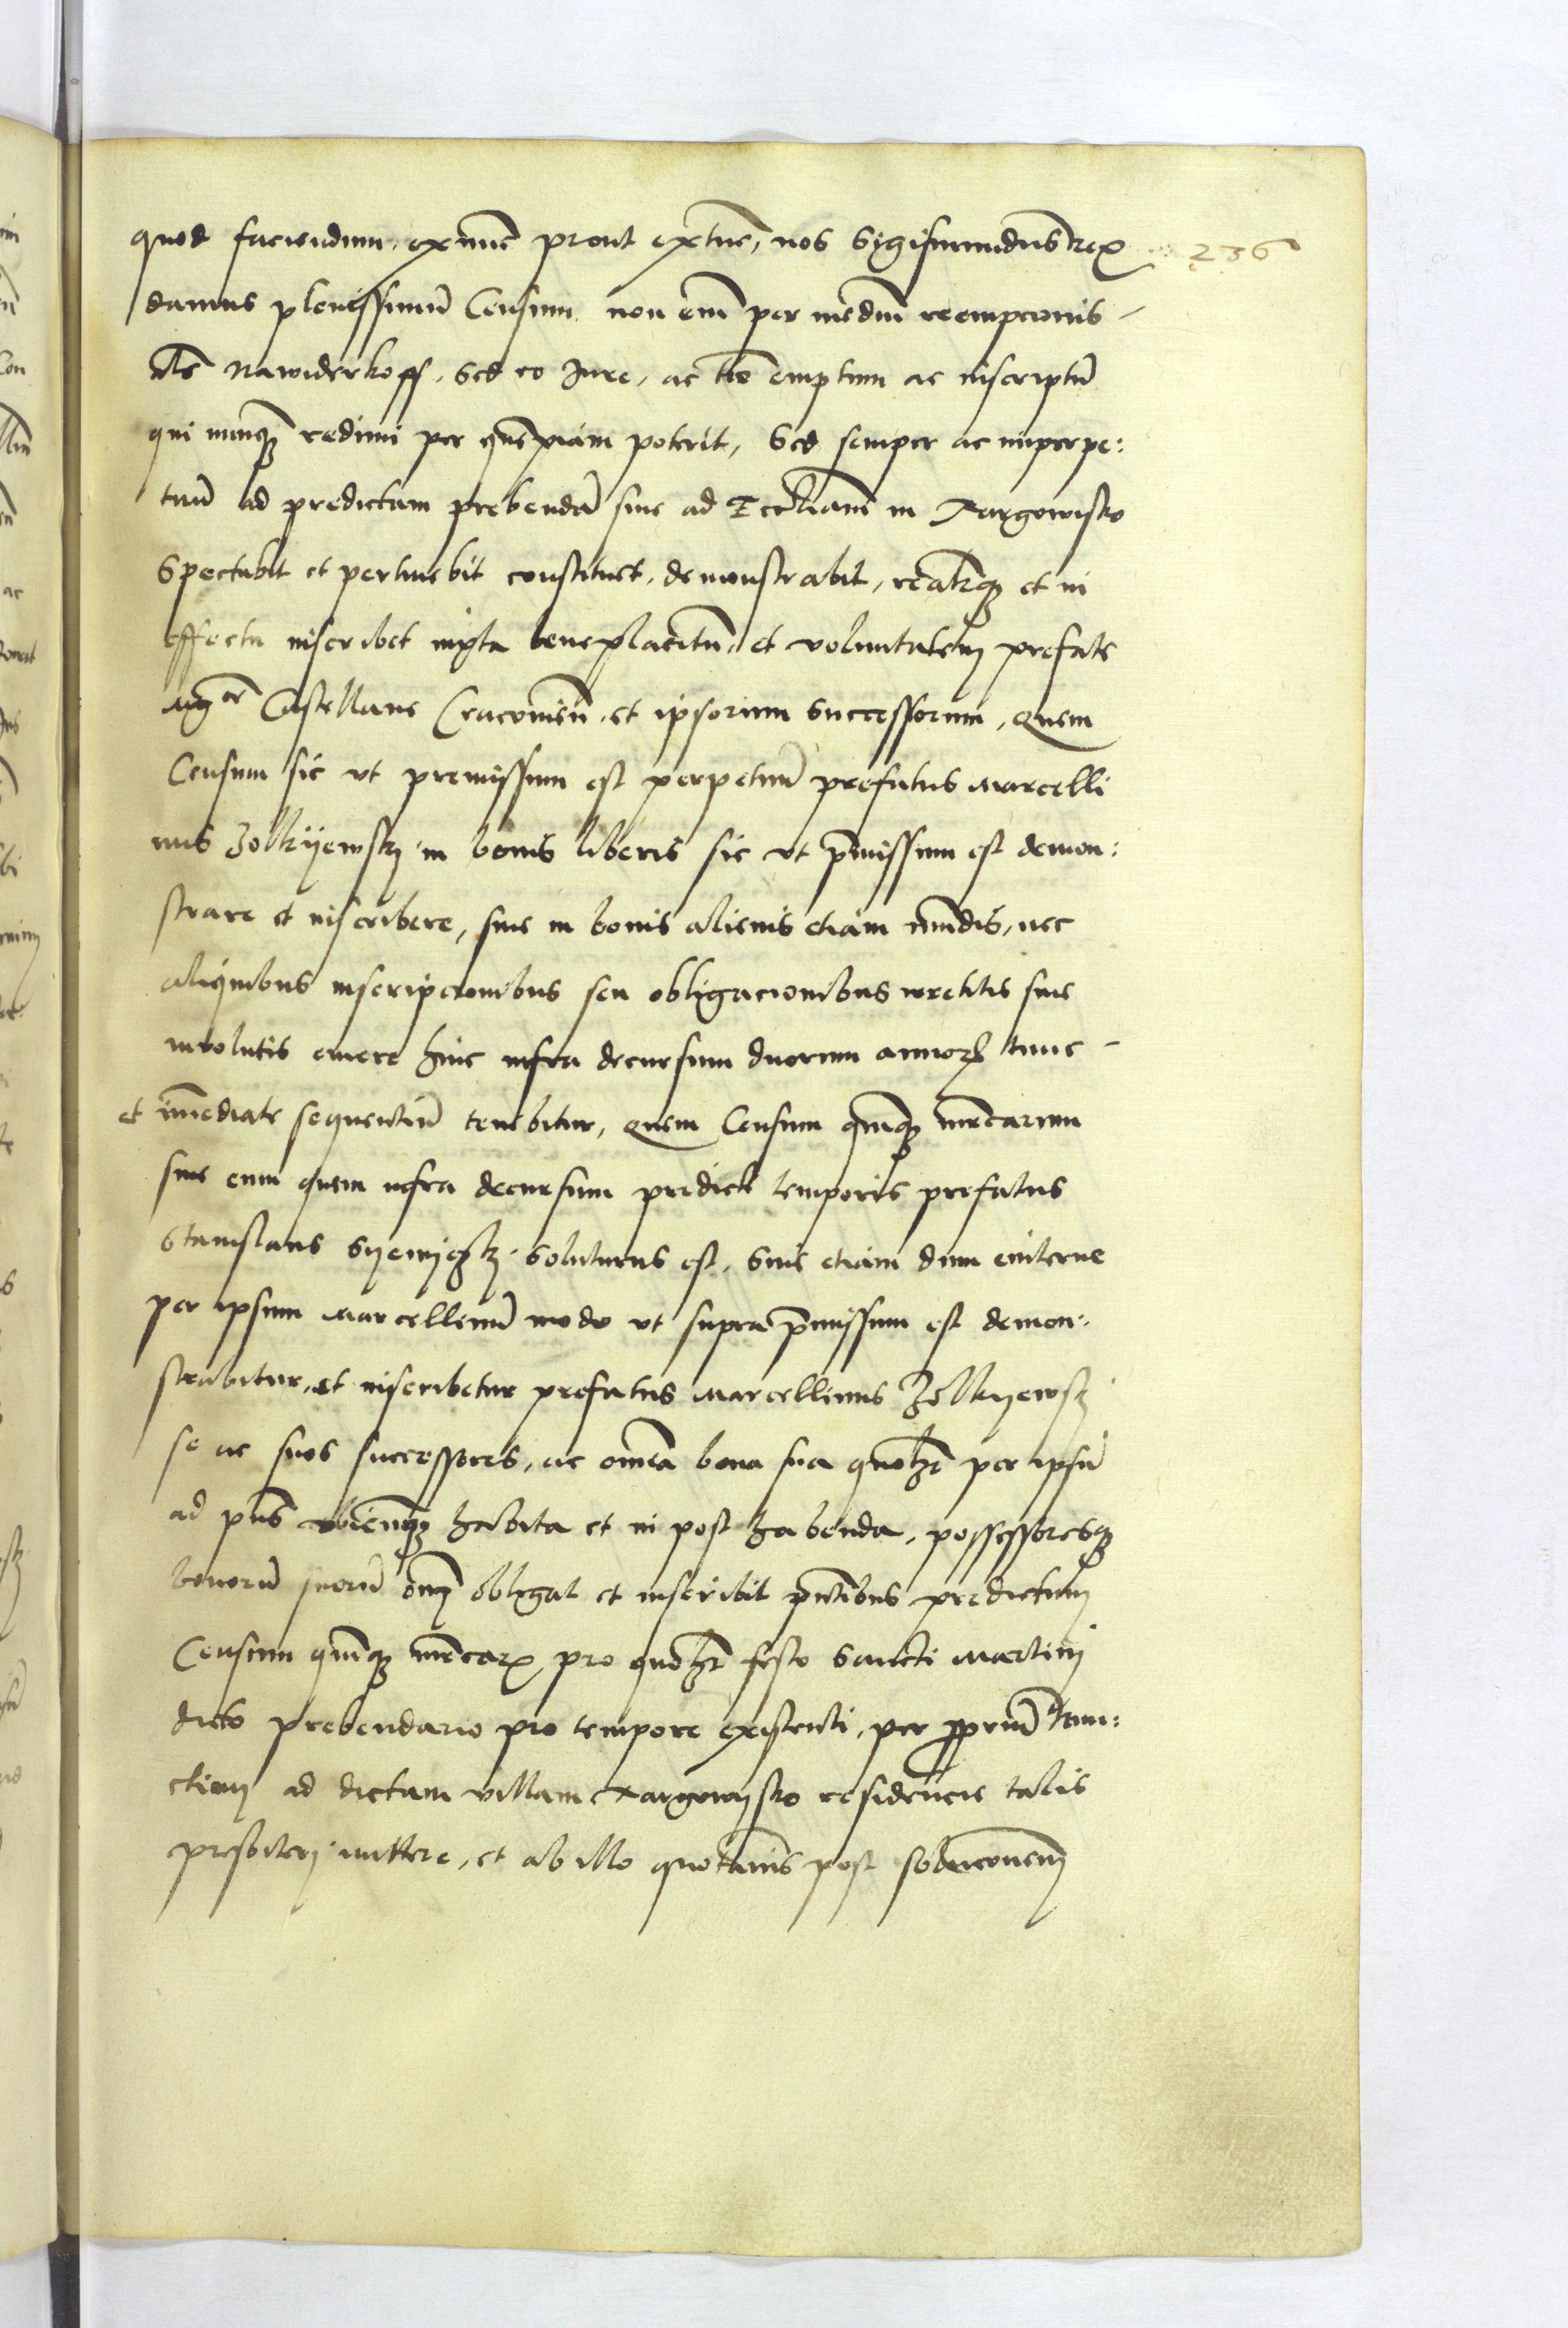 quod faciendum, exnunc prout extunc, nos Sigismundus Rex 236
damus plenissimū Censum non em̄ per mediū reempcionis
als Nawiderkoff, Sed eo Jure, ac tm̄ emptum ac inscriptū
qui nunq̄ redimi per quempiam poterit, Sed semper ac inperpe:
tuū ad predictam prebendā siue ad Eccl̄iam in Targowisko
Spectabit et pertinebit constituet, demonstrabit, realiterq̄ et in
effectu inscribet iuxta beneplacitū et voluntatem prefate
Mg̅ce Castellane Cracouien̄, et ipsorum Successorum, Quem
Censum sic vt premissum est perpetuū prefatus Marcelli
nus Zolkyewsky in bonis liberis sic vt p̄missum est demon:
strare et inscribere, siue in bonis alienis etiam mundis, nec
aliquibus inscripcionibus seu obligacionibus irretitis siue
inuolutis emere hinc infra decursum duorum annorum tunc
et im̄ediate sequentiū tenebitur, Quem Censum quinq̄ mrcarum
siue eum quem infra decursum predicti temporis prefatus
Stanislaus Syemyeczky soluturus est, Siue etiam dum euiterne
per ipsum Marcellinū modo vt supra p̄missum est demon:
strabitur, et inscribetur prefatus Marcellinus Zolkyewsky
se ac suos successores, ac om̄ia bona sua quol̄zt per ipsū
ad pn̄s vbicunq̄ habita et in post habenda, possessoresq̄
bonorū suorū om̄ obligat et inscribit pn̄tibus predictum
Censum quinq̄ mrcarum pro quol̄zt festo Sancti Martini
dicto prebendario pro tempore existenti, per propriū
ad dictam villam Targowysko residencie talis
presbiteri mittere, et ab illo quotannis post solucionem